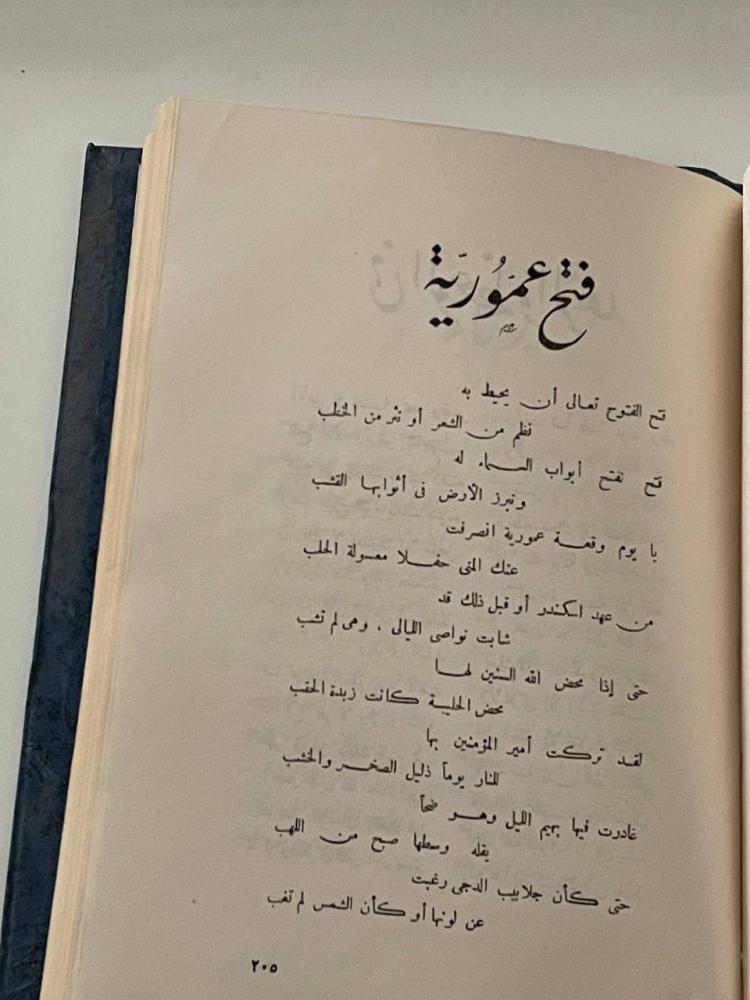 فتح عمّوُريّة
فتح الفتوح تعالى أن يحيط به
نظم من الشعر أو نثر من الخطب
فتح تفتح أبواب السماء له
وتبرز الأرض فى أثوابها القشب
يا يوم وقعة عمورية انصرفت
عنك المنى حفلا معسولة الحلب
من عهد اسكندر أو قبل ذلك قد
شابت نواصى الليالى ، وهى لم تشب
حتى إذا محض الله السنين لها
محض الحليبة كانت زبدة الحقب
لقد تركت أمير المؤمنين بها
للنار يوماً ذليل الصخر والخشب
غادرت فيها بهيم الليل وهو ضحاً
يقله وسطها صبح من اللهب
حتى كأن جلابيب الدجى رغبت
عن لونها أو كأن الشمس لم تغب
٢٠٥